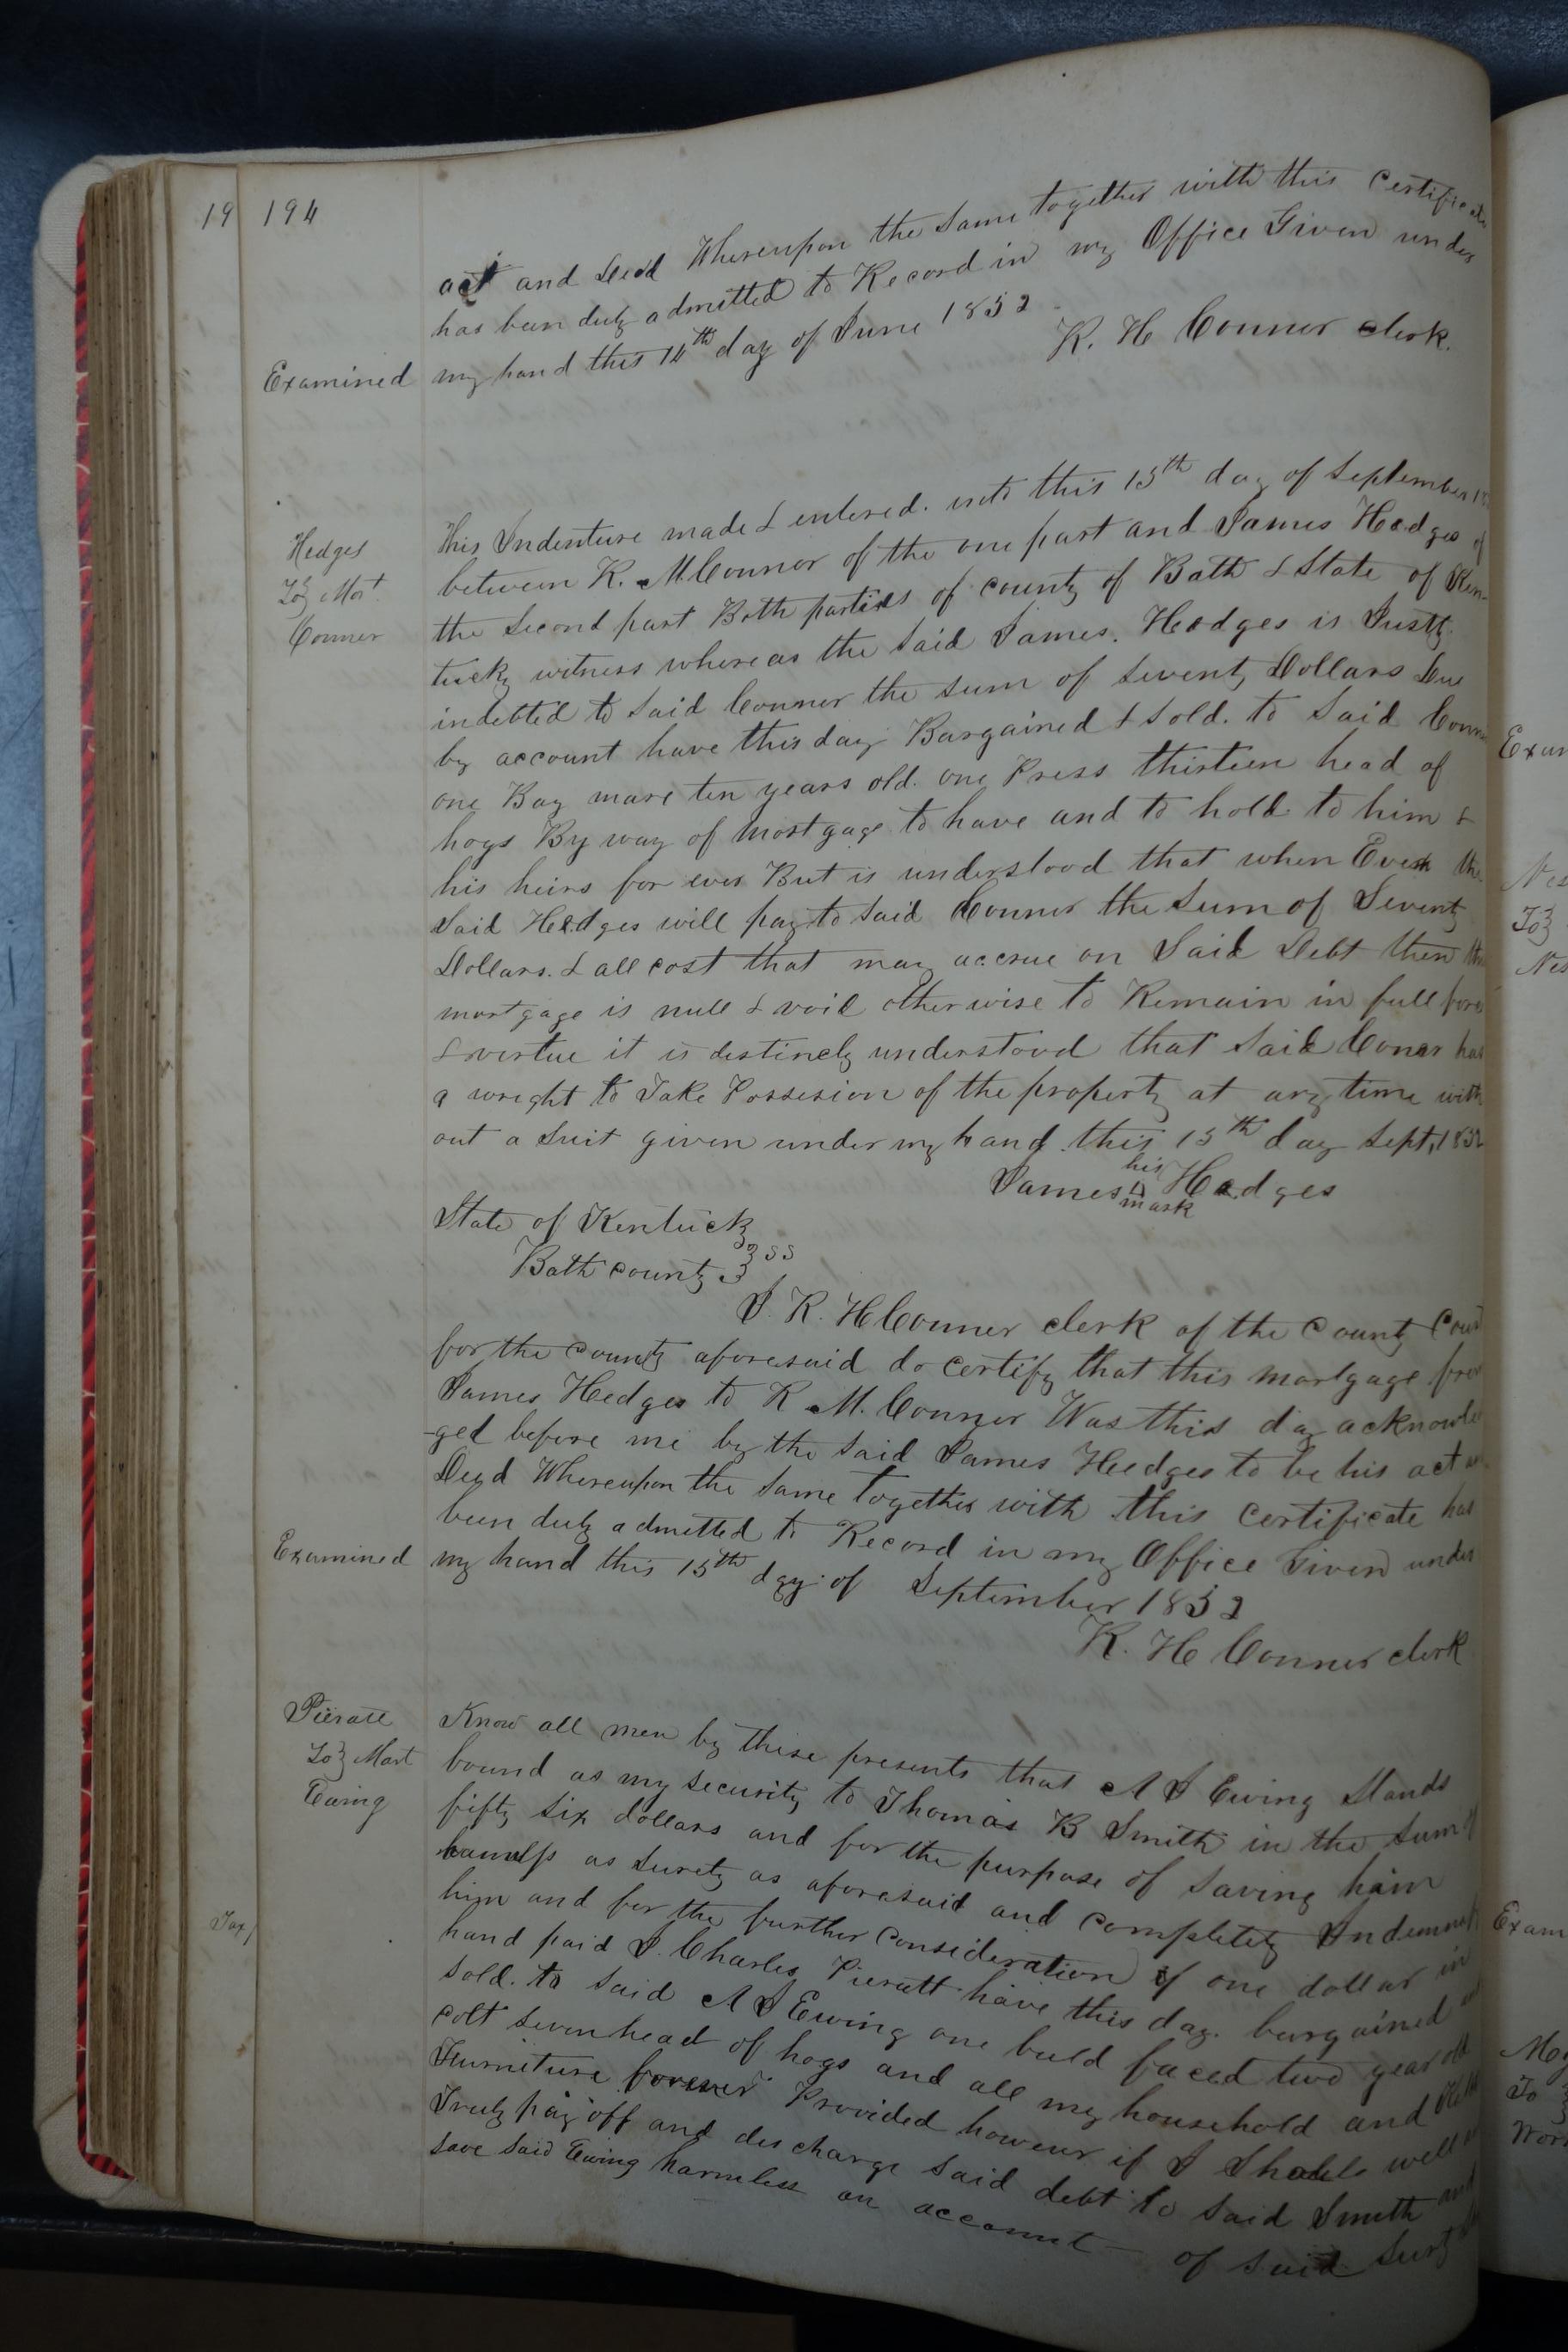 19 194
act and Deed Whereupon the Same together with this Certificate
has been duly admitted to Record in my Office Given under
Examined my hand this 14th day of June 1852
K. H Conner clerk.
Hedges
To } Mort
Conner
This Indenture made & entered. into this 15th day of September
between K. M. Connor of the one part and James Hedges of
the Second part Both parties of county of Bath & State of Ken-
tucky witness whereas the Said James. Hedges is Justly
indebted to Said Connor the sum of Seventy Dollars Due
by account have this day Bargained & Sold. to Said Connor
one Bay mare ten years old. one Press thirteen head of
hogs By way of Mortgage to have and to hold to him &
his heirs for ever But is understood that when Ever the
Said Hedges will pay to Said Connor the Sum of Seventy
Dollars. & all cost that may accrue on Said Debt then the
mortgage is null & void otherwise to Remain in full force
& virtue it is destincly understood that Said Conner has
a wright to Take Possesion of the property at any time with
out a Suit given under my hand this 15th day Sept, 1852
his
James Hedges
mark
State of Kentucky
Bath county } ss
I. K. H Conner clerk of the County Court
for the County aforesaid do certify that this mortgage from
James Hedges to K. M. Connor Was this day acknowled
-ged before me by the Said James Hedges to be his act
Deed Whereupon the Same Together with this Certificate has
been duly admitted to Record in my Office Given under
Examined my hand this 15th day of September 1852
K. H Conner clerk
Pieratt
To } Mort
Ewing
Know all men by these presents that A J Ewing Stands
bound as my security to Thomas B Smith in the Sum of
fifty Six dollars and for the purpose of Saving him
as Surety as aforesaid and completely Indemnify
him and for the further Consideration of one dollar in
hand paid I. Charles Pieratt have this day. bargained
Sold. to Said A J Ewing one bald faced two year old
colt Seven head of hogs and all my household and
Furniture forever Provided however if I Shall well
Truly pay off and discharge Said debt to Said Smith and
Save Said Ewing harmless on account of Said
Tax/
Exam
To }
Exam
To }